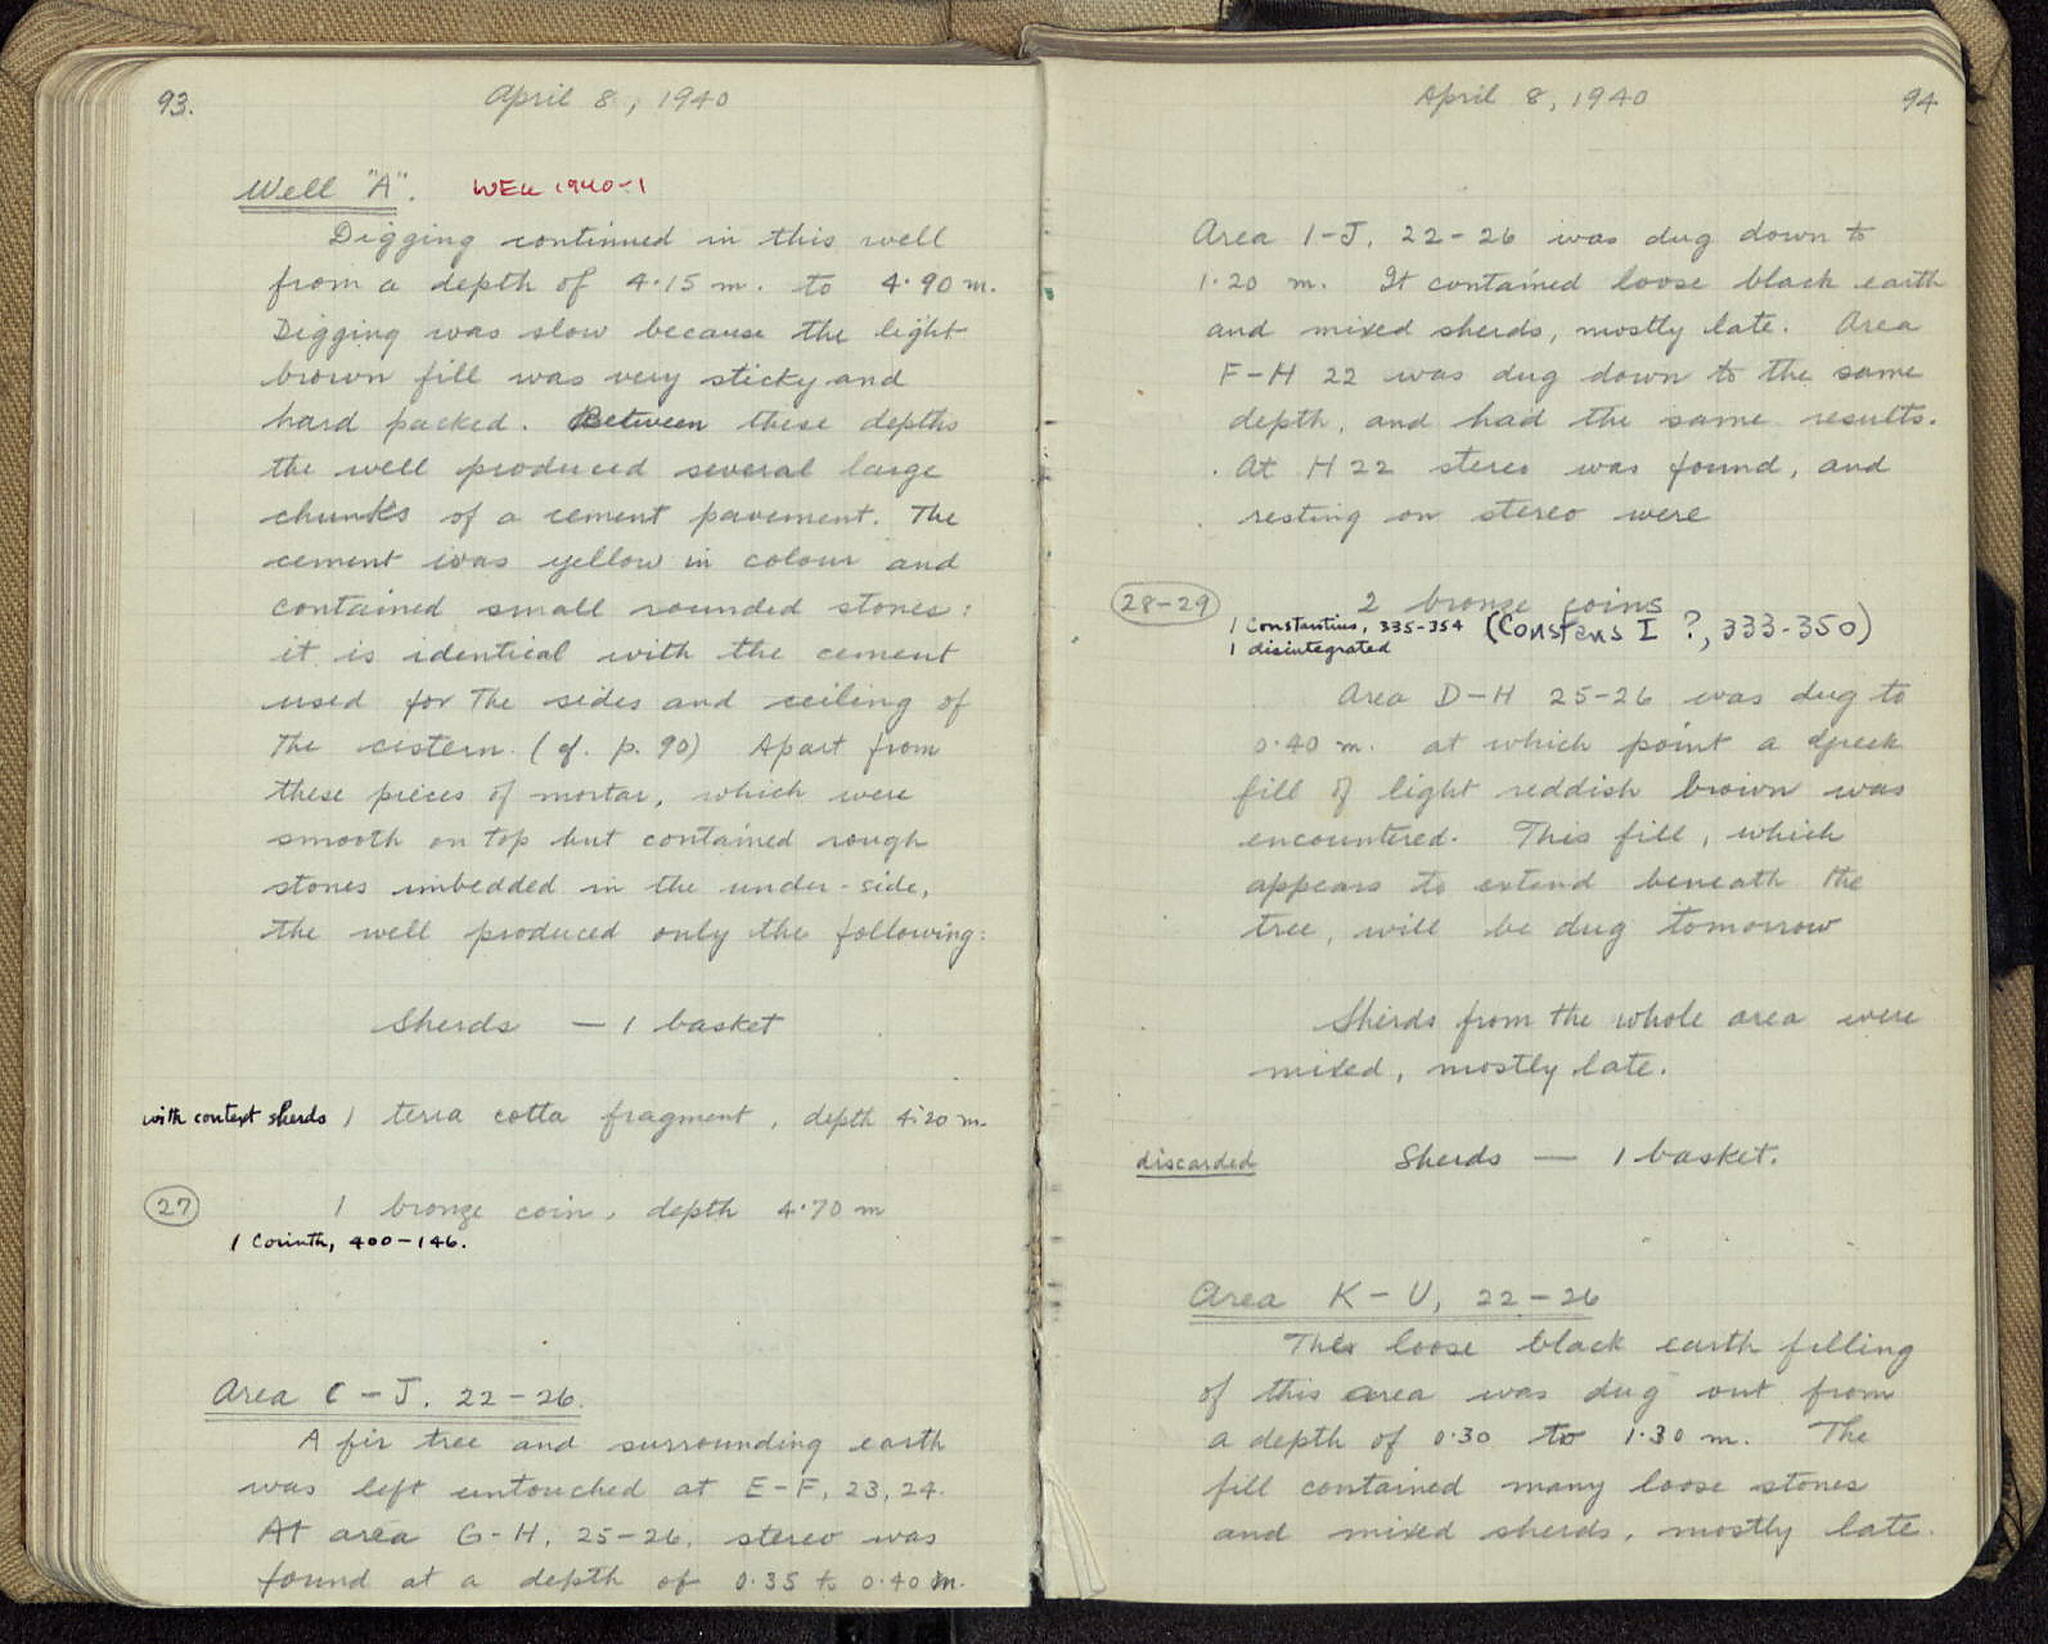 93.
April 8, 1940
Well "A". WELL 1940-1
Digging continued in this well
from a depth of 4.15 m. to 4.90 m.
Digging was slow because the light
brown fill was very sticky and
hard packed. Between these depths
the well produced several large
chunks of a cement pavement. The
cement was yellow in colour and
contained small rounded stones:
it is identical with the cement
used for the sides and ceiling of
the cistern. (cf. p. 90) Apart from
these pieces of mortar, which were
smooth on top but contained rough
stones imbedded in the under-side,
the well produced only the following:
Sherds — 1 basket
with context sherds 1 terra cotta fragment, depth 4.20 m.
27 1 bronze coin, depth 4.70 m
1 Corinth, 400-146.
Area C-J, 22-26.
A fir tree and surrounding earth
was left untouched at E-F, 23, 24.
At area G-H, 25-26, stereo was
found at a depth of 0.35 to 0.40 m.
April 8, 1940
94
Area I-J, 22-26 was dug down to
1.20 m. It contained loose black earth
and mixed sherds, mostly late. Area
F-H 22 was dug down to the same
depth, and had the same results.
At H 22 stereo was found, and
resting on stereo were
28-29 2 bronze coins
1 Constantius, 335-354 (Constans I ?, 333-350)
1 disintegrated
Area D-H 25-26 was dug to
0.40 m. at which point a Greek
fill of light reddish brown was
encountered. This fill, which
appears to extend beneath the
tree, will be dug tomorrow
Sherds from the whole area were
mixed, mostly late.
discarded Sherds — 1 basket.
Area K-U, 22-26
The loose black earth filling
of this area was dug out from
a depth of 0.30 to 1.30 m. The
fill contained many loose stones
and mixed sherds, mostly late.